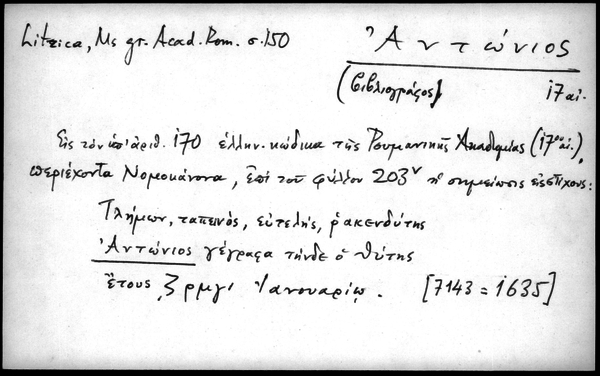 Litzica, Ms gr. Acad. Rom. σ. 150
Ἀντώνιος
(βιβλιογράφος) 17 αἰ.
Εἰς τὸν ὑπ' ἀριθ. 170 ἑλλην. κώδικα τῆς Ρουμανικῆς Ἀκαδημίας (17ου αἰ.),
περιέχοντα Νομοκάνονα, ἐπὶ τοῦ φύλλου 203v ἡ σημείωσις εἰς στίχους:
Τλήμων, ταπεινός, εὐτελής, ῥακενδύτης
Ἀντώνιος γέγραφα τήνδε ὁ θύτης
ἔτους ͵ζρμγʹ Ἰανουαρίῳ. [7143 = 1635]